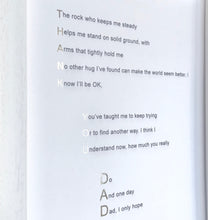 The rock who keeps me steady
Helps me stand on solid ground, with
Arms that tightly hold me
No other hug I've found can make the world seem better. I
Know I'll be OK,
You've taught me to keep trying
Or to find another way. I think I
Understand now, how much you really
Do
And one day
Dad, I only hope